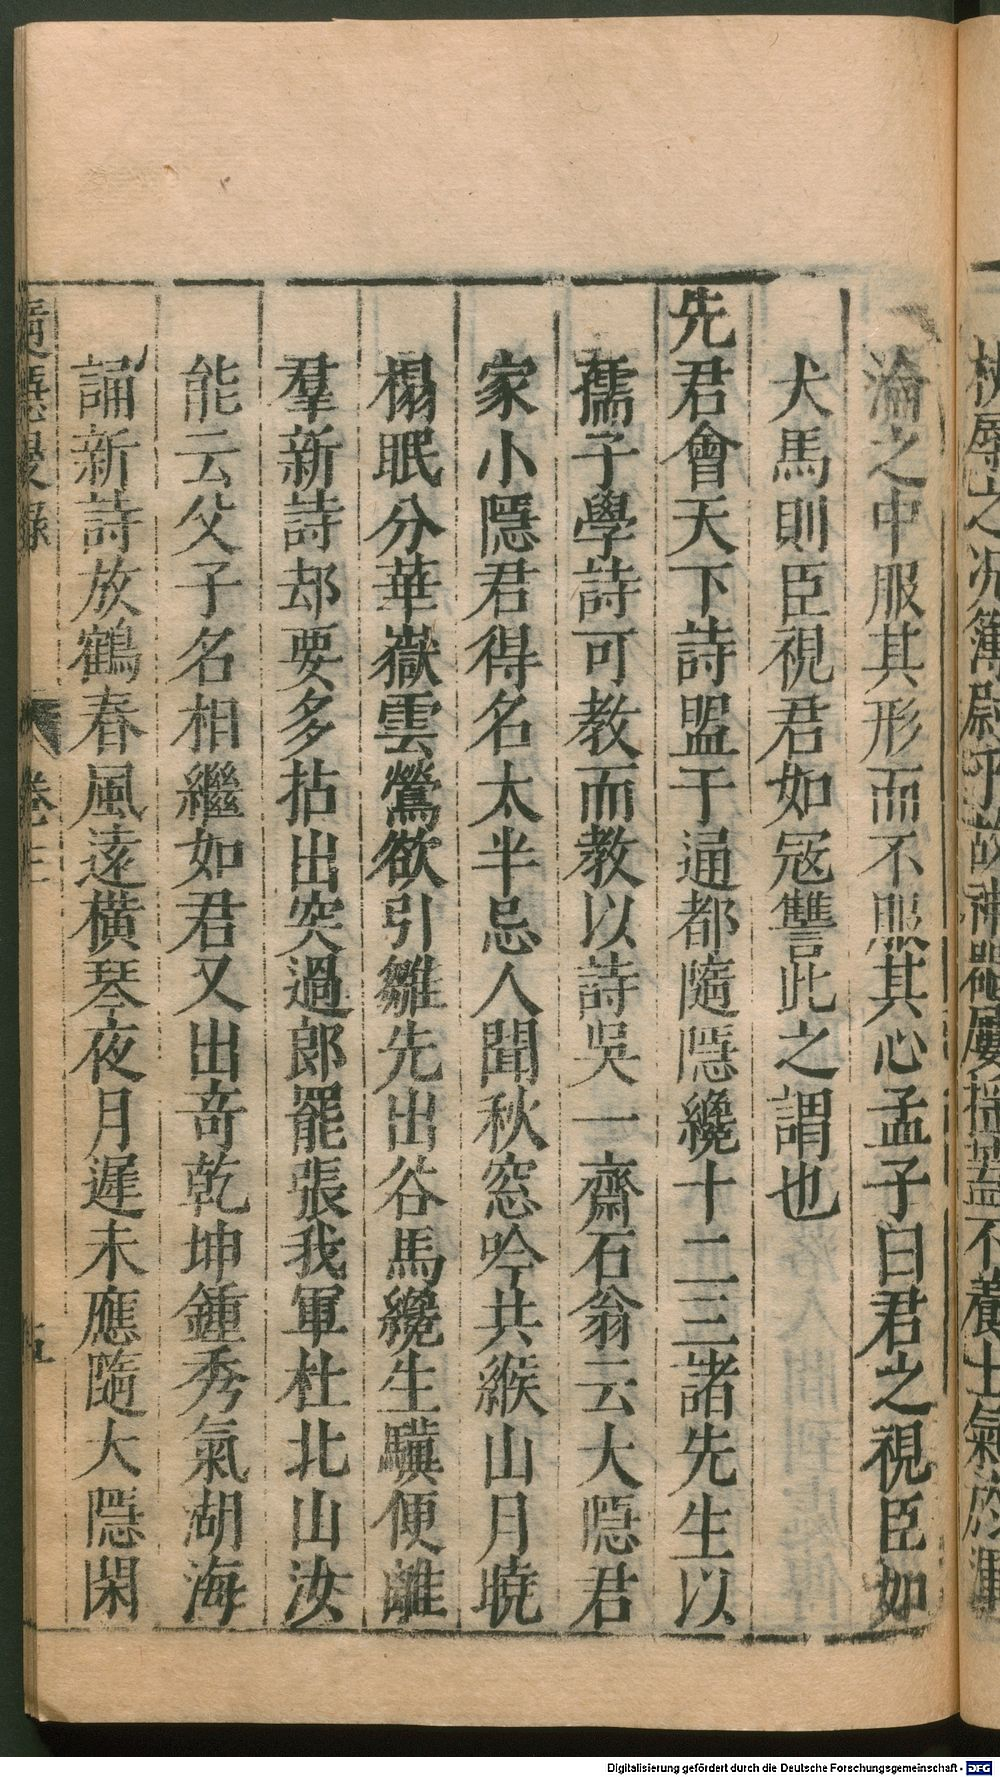 淪之中服其形而不服其心孟子曰君之視臣如
犬馬則臣視君如寇讐此之謂也
先君會天下詩盟于通都隨隱纔十二三諸先生以
孺子學詩可教而教以詩吳一齋石翁云大隱君
家小隱君得名太半忌人聞秋窓吟共緱山月曉
榻眠分華嶽雲鶯欲引雛先出谷馬纔生驥便離
羣新詩却要多拈出突過郎罷張我軍杜北山汝
能云父子名相繼如君又出竒乾坤鍾秀氣湖海
誦新詩放鶴春風遠橫琴夜月遲未應隨大隱閑
隨隱漫錄
卷三
五